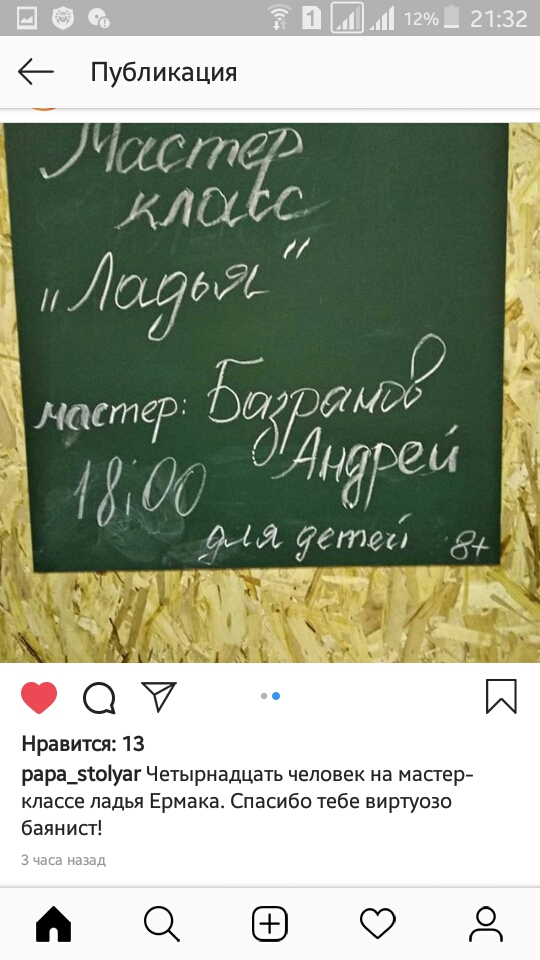 1
12% 21:32
Публикация
Мастер
класс
"Ладья"
мастер: Базрамов
Андрей
18:00
для детей 8+
Нравится: 13
papa_stolyar Четырнадцать человек на мастер-
классе ладья Ермака. Спасибо тебе виртуозо
баянист!
3 часа назад